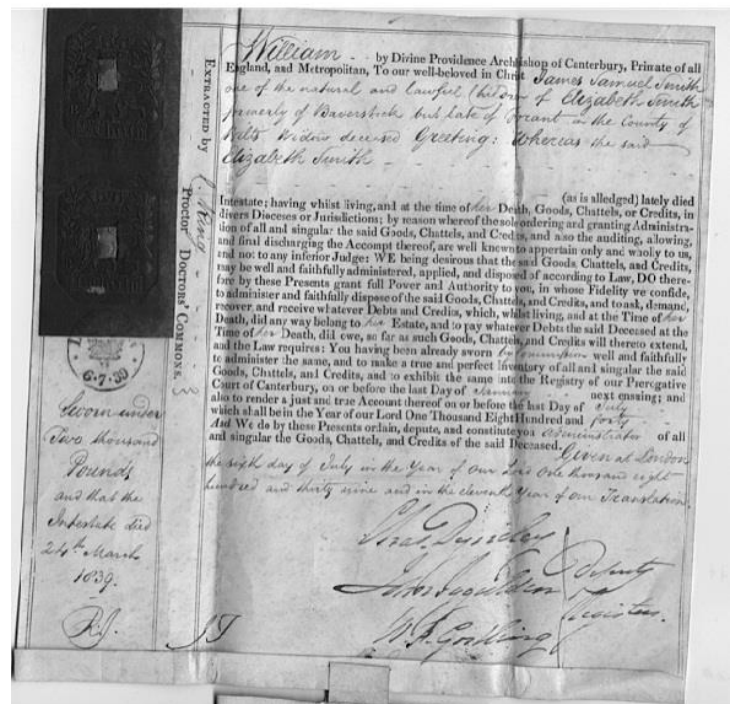 William - by Divine Providence Archbishop of Canterbury, Primate of all
England, and Metropolitan, To our well-beloved in Christ James Samuel Smith
one of the natural and lawful Children of Elizabeth Smith
formerly of Baverstock but late of in the County of
Wilts Widow deceased Greeting: Whereas the said
Elizabeth Smith -
(as is alledged) lately died
Intestate; having whilst living, and at the time of her Death, Goods, Chattels, or Credits, in
divers Dioceses or Jurisdictions; by reason whereof the sole ordering and granting Administra-
tion of all and singular the said Goods, Chattels, and Credits, and also the auditing, allowing,
and final discharging the Accompt thereof, are well known to appertain only and wholly to us,
and not to any inferior Judge: WE being desirous that the said Goods, Chattels, and Credits,
may be well and faithfully administered, applied, and disposed of according to Law, DO there-
fore by these Presents grant full Power and Authority to you, in whose Fidelity we confide,
to administer and faithfully dispose of the said Goods, Chattels, and Credits, and to ask, demand,
recover, and receive whatever Debts and Credits, which, whilst living, and at the Time of her
Death, did any way belong to her Estate, and to pay whatever Debts the said Deceased at the
Time of her Death, did owe, so far as such Goods, Chattels, and Credits will thereto extend,
and the Law requires: You having been already sworn by Commission well and faithfully
to administer the same, and to make a true and perfect Inventory of all and singular the said
Goods, Chattels, and Credits, and to exhibit the same into the Registry of our Prerogative
Court of Canterbury, on or before the last Day of January next ensuing; and
also to render a just and true Account thereof on or before the last Day of July
which shall be in the Year of our Lord One Thousand Eight Hundred and forty
And We do by these Presents ordain, depute, and constitute you administrator of all
and singular the Goods, Chattels, and Credits of the said Deceased. Given at London
the sixth day of July in the Year of our Lord One thousand eight
hundred and thirty nine and in the eleventh Year of our Translation.
Chas. Dyneley
John Iggulden
W. F. Gostling
Deputy
Registers.
EXTRACTED by
King
Proctor DOCTORS' COMMONS.
6.7.39
Sworn under
Two thousand
Pounds
and that the
Intestate died
24th March
1839.